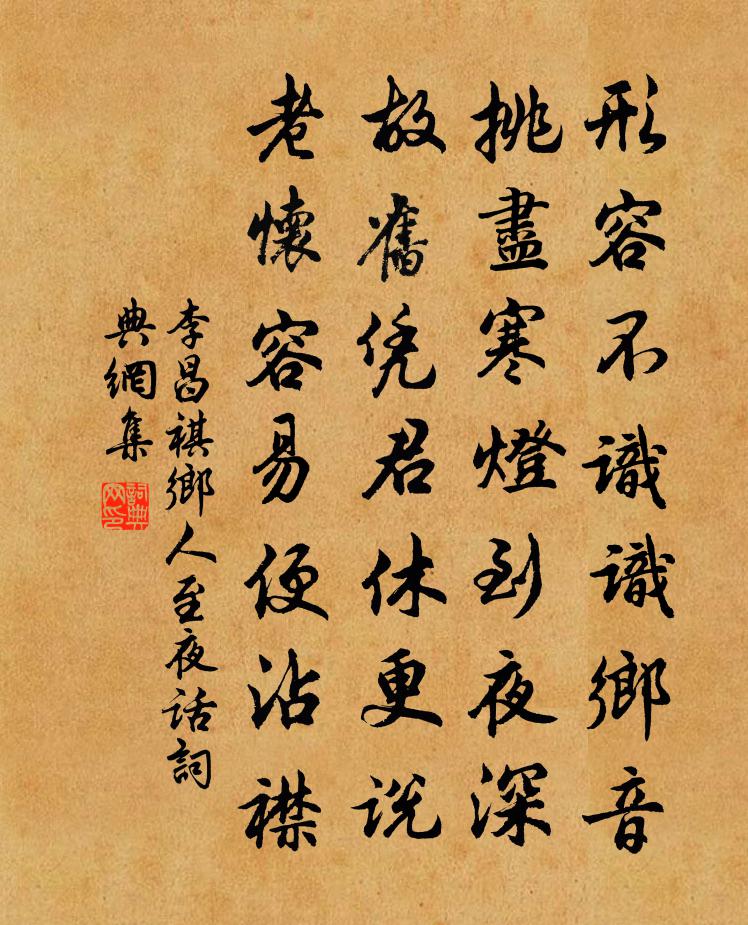 形容不識識鄉音
挑盡寒燈到夜深
故舊凭君休更說
老懷容易便沾襟
李昌祺鄉人至夜話詞
典網集
詞典
网印